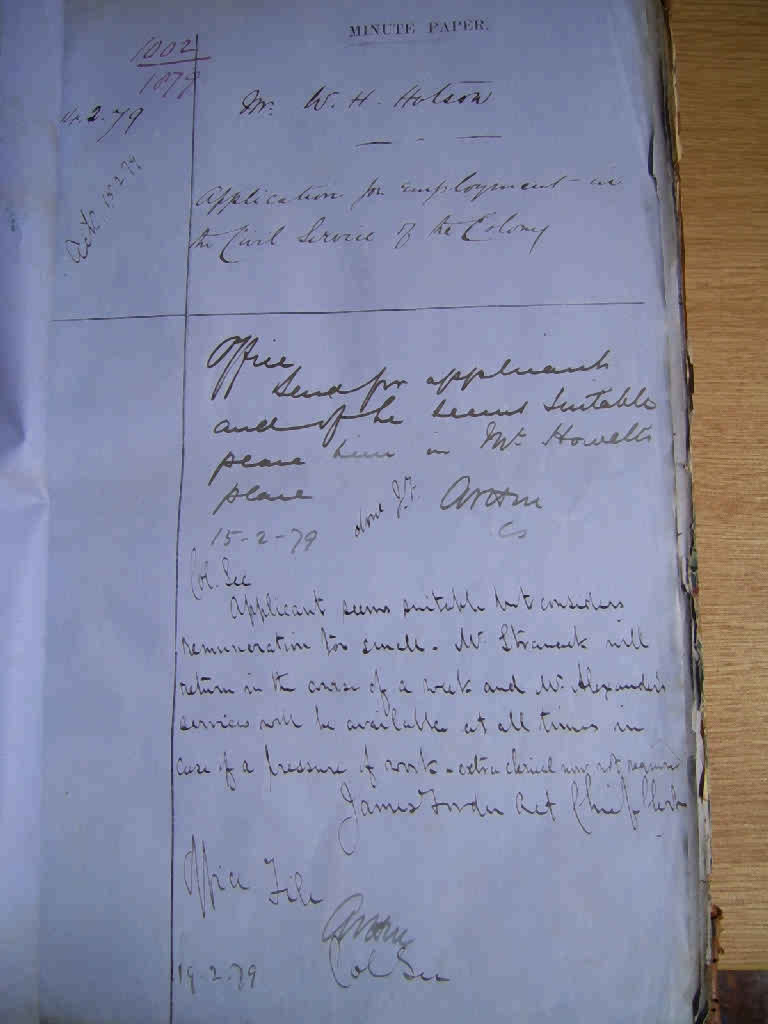 MINUTE PAPER.
1002
1879
2.79
Mr. W. H. Hotson
Application for employment in
the Civil Service of the Colony
Office
Send for applicant
and if he seems suitable
please him in Mr Howells
place
done
15-2-79
CS
Col. Sec
Applicant seems suitable but considers
remuneration too small. Mr Stranack will
return in the course of a week and Mr Alexander's
services will be available at all times in
case of a pressure of work - extra clerical now not required
James Act Chief Clerk
Office File
Col Sec
19-2-79